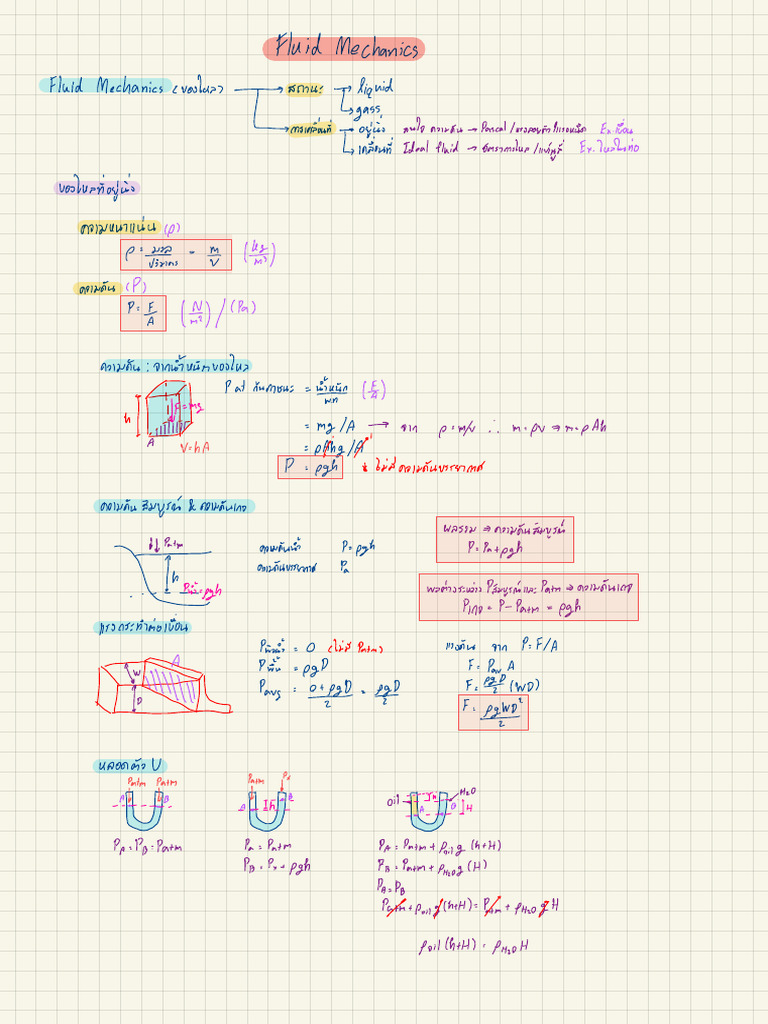 Fluid Mechanics
Fluid Mechanics (ของไหล) → สถานะ → liquid
→ gass
→ การเคลื่อนที่ → อยู่นิ่ง สนใจ ความดัน → Pascal / แรงลอยตัว / แรงหนืด Ex. เขื่อน
→ เคลื่อนที่ Ideal fluid → อัตราการไหล / แบร์นูลี Ex. ไหลในท่อ
ของไหลที่อยู่นิ่ง
ความหนาแน่น (ρ)
ρ = มวล/ปริมาตร = m/V (kg/m³)
ความดัน (P)
P = F/A (N/m²) / (Pa)
ความดัน : จากน้ำหนักของไหล
h
F = mg
A
V = hA
P ที่ ก้นภาชนะ = น้ำหนัก/พท (F/A)
= mg/A → จาก ρ = m/v ∴ m = ρv ⇒ m = ρAh
= ρAhg/A
P = ρgh * ไม่มีความดันบรรยากาศ
ความดันสัมบูรณ์ & ความดันเกจ
Patm
h
Pน้ำ = ρgh
ความดันน้ำ P = ρgh
ความดันบรรยากาศ Pa
ผลรวม ⇒ ความดันสัมบูรณ์
P = Pa + ρgh
ผลต่างระหว่าง Pสัมบูรณ์ และ Patm ⇒ ความดันเกจ
Pเกจ = P - Patm = ρgh
แรงกระทำต่อเขื่อน
A
W
D
Pผิวน้ำ = 0 (ไม่มี Patm)
Pพื้น = ρgD
Pavg = (0 + ρgD)/2 = ρgD/2
แรงดัน จาก P = F/A
F = Pav A
F = ρgD/2 (WD)
F = ρgWD²/2
หลอดตัว U
Patm Patm
A B
PA = PB = Patm
Patm Px
A h B
Pa = Patm
PB = Px + ρgh
oil h H₂O
A B H
PA = Patm + ρoil g (h+H)
PB = Patm + ρH₂O g (H)
PA = PB
Patm + ρoil g (h+H) = Patm + ρH₂O g H
ρoil (h+H) = ρH₂O H